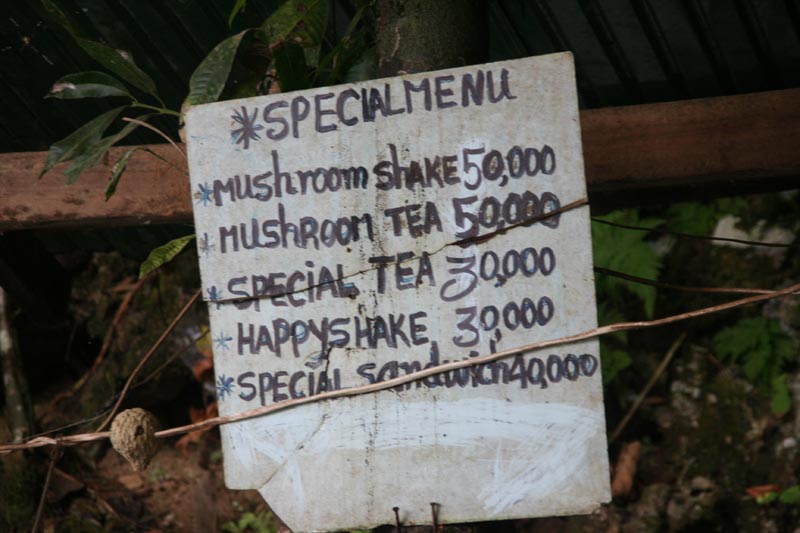 *SPECIAL MENU
*MUshroom SHAKE 50,000
*MUSHROOM TEA 50,000
*SPECIAL TEA 30,000
*HAPPYSHAKE 30,000
*SPECIAL Sandwich 40,000